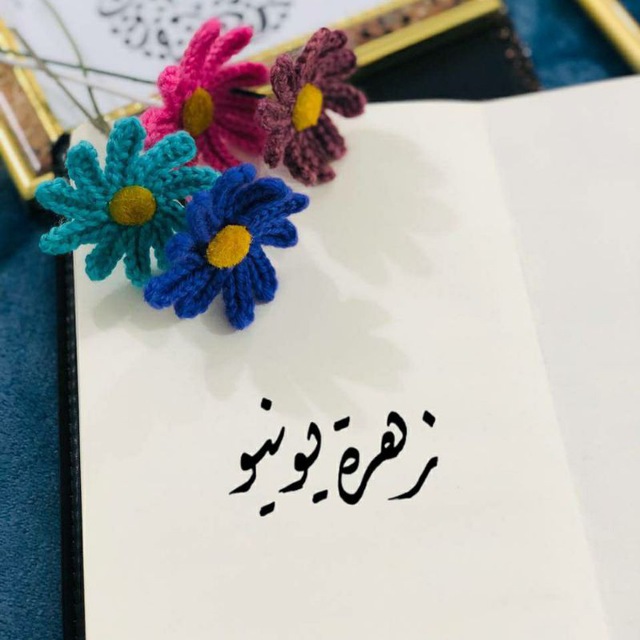 زهرة يونيو